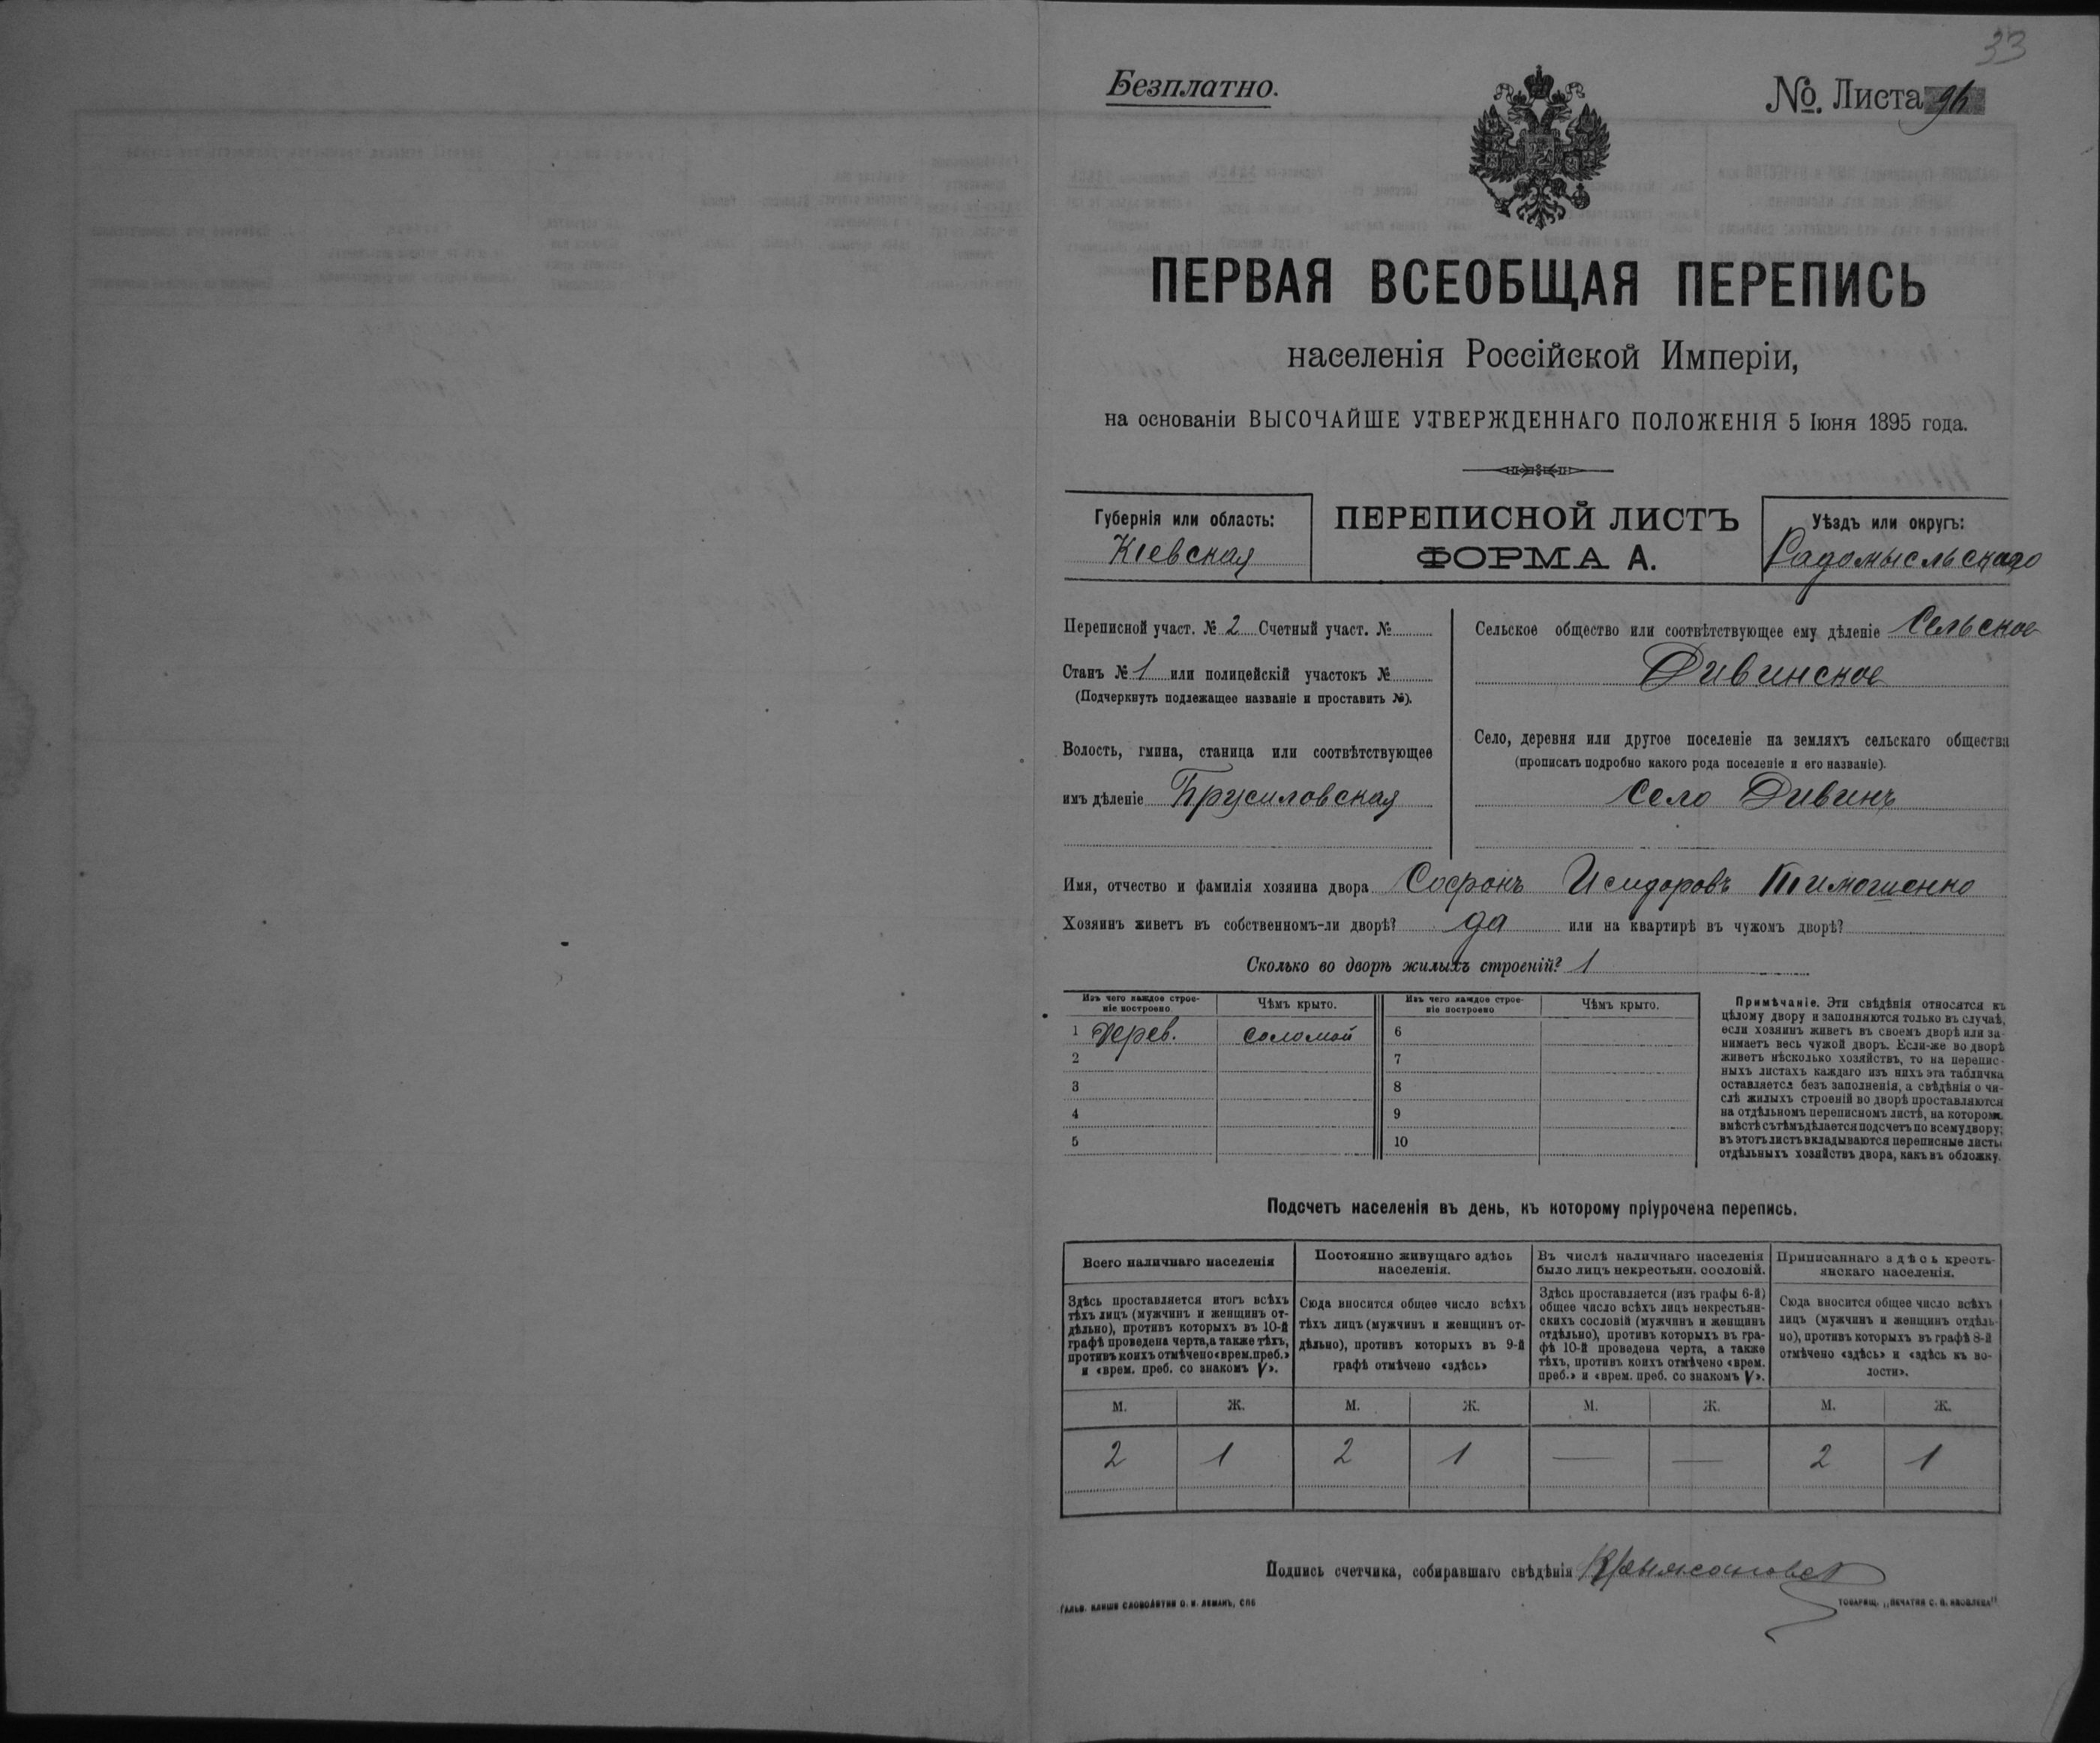 33
Безплатно.
№. Листа 96
ПЕРВАЯ ВСЕОБЩАЯ ПЕРЕПИСЬ
населенія Россійской Имперіи,
на основаніи ВЫСОЧАЙШЕ УТВЕРЖДЕННАГО ПОЛОЖЕНІЯ 5 Іюня 1895 года.
Губернія или область:
Кіевская
ПЕРЕПИСНОЙ ЛИСТЪ
ФОРМА А.
Уѣздъ или округъ:
Радомысльскаго
Переписной участ. № 2 Счетный участ. №
Станъ № 1 или полицейскій участокъ №
(Подчеркнуть подлежащее названіе и проставить №).
Волость, гмина, станица или соотвѣтствующее
имъ дѣленіе Брусиловская
Сельское общество или соотвѣтствующее ему дѣленіе Сельское
Дивинское
Село, деревня или другое поселеніе на земляхъ сельскаго общества
(прописать подробно какого рода поселеніе и его названіе).
Село Дивинъ
Имя, отчество и фамилія хозяина двора Софронъ Исидоровъ Тимошенко
Хозяинъ живетъ въ собственномъ-ли дворѣ? да или на квартирѣ въ чужомъ дворѣ?
Сколько во дворѣ жилыхъ строеній? 1
Изъ чего каждое строе-
ніе построено
Чѣмъ крыто.
Изъ чего каждое строе-
ніе построено
Чѣмъ крыто.
1 Дерев. соломой 6
2 7
3 8
4 9
5 10
Примѣчаніе. Эти свѣдѣнія относятся къ
цѣлому двору и заполняются только въ случаѣ,
если хозяинъ живетъ въ своемъ дворѣ или за-
нимаетъ весь чужой дворъ. Если-же во дворѣ
живетъ нѣсколько хозяйствъ, то на перепис-
ныхъ листахъ каждаго изъ нихъ эта табличка
оставляется безъ заполненія, а свѣдѣнія о чи-
слѣ жилыхъ строеній во дворѣ проставляются
на отдѣльномъ переписномъ листѣ, на которомъ
вмѣстѣ съ тѣмъ дѣлается подсчетъ по всему двору;
въ этотъ листъ вкладываются переписные листы
отдѣльныхъ хозяйствъ двора, какъ въ обложку.
Подсчетъ населенія въ день, къ которому пріурочена перепись.
Всего наличнаго населенія
Здѣсь проставляется итогъ всѣхъ
тѣхъ лицъ (мужчинъ и женщинъ от-
дѣльно), противъ которыхъ въ 10-й
графѣ проведена черта, а также тѣхъ,
противъ коихъ отмѣчено «врем. преб.»
и «врем. преб. со знакомъ V».
Постоянно живущаго здѣсь
населенія.
Сюда вносится общее число всѣхъ
тѣхъ лицъ (мужчинъ и женщинъ от-
дѣльно), противъ которыхъ въ 9-й
графѣ отмѣчено «здѣсь»
Въ числѣ наличнаго населенія
было лицъ некрестьян. сословій.
Здѣсь проставляется (изъ графы 6-й)
общее число всѣхъ лицъ некрестьян-
скихъ сословій (мужчинъ и женщинъ
отдѣльно), противъ которыхъ въ гра-
фѣ 10-й проведена черта, а также
тѣхъ, противъ коихъ отмѣчено «врем.
преб.» и «врем. преб. со знакомъ V».
Приписаннаго здѣсь кресть-
янскаго населенія.
Сюда вносится общее число всѣхъ
лицъ (мужчинъ и женщинъ отдѣль-
но), противъ которыхъ въ графѣ 8-й
отмѣчено «здѣсь» и «здѣсь къ во-
лости».
М. Ж. М. Ж. М. Ж. М. Ж.
2 1 2 1 — — 2 1
Подпись счетчика, собиравшаго свѣдѣнія
ГАЛЬВ. КЛИШЕ СЛОВОЛИТНИ О. И. ЛЕМАНЪ, СПБ
ТОВАРИЩ. „ПЕЧАТНЯ С. П. ЯКОВЛЕВА"